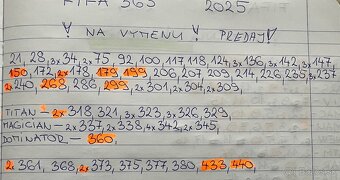 FIFA 365 2025
! NA VÝMENU, PREDAJ !
21, 28, 3x34, 2x75, 92, 100, 117, 118, 124, 3x136, 3x142, 3x147,
150, 172, 2x178, 179, 199, 206, 207, 209, 214, 226, 235, 237
2x240, 268, 286, 299, 2x301, 2x304, 2x309,
TITAN - 2x318, 321, 3x323, 3x326, 329
MAGICIAN - 2x337, 2x338, 4x342, 2x345,
DOMINATOR - 360,
2x361, 368, 2x373, 375, 377, 380, 433, 440,